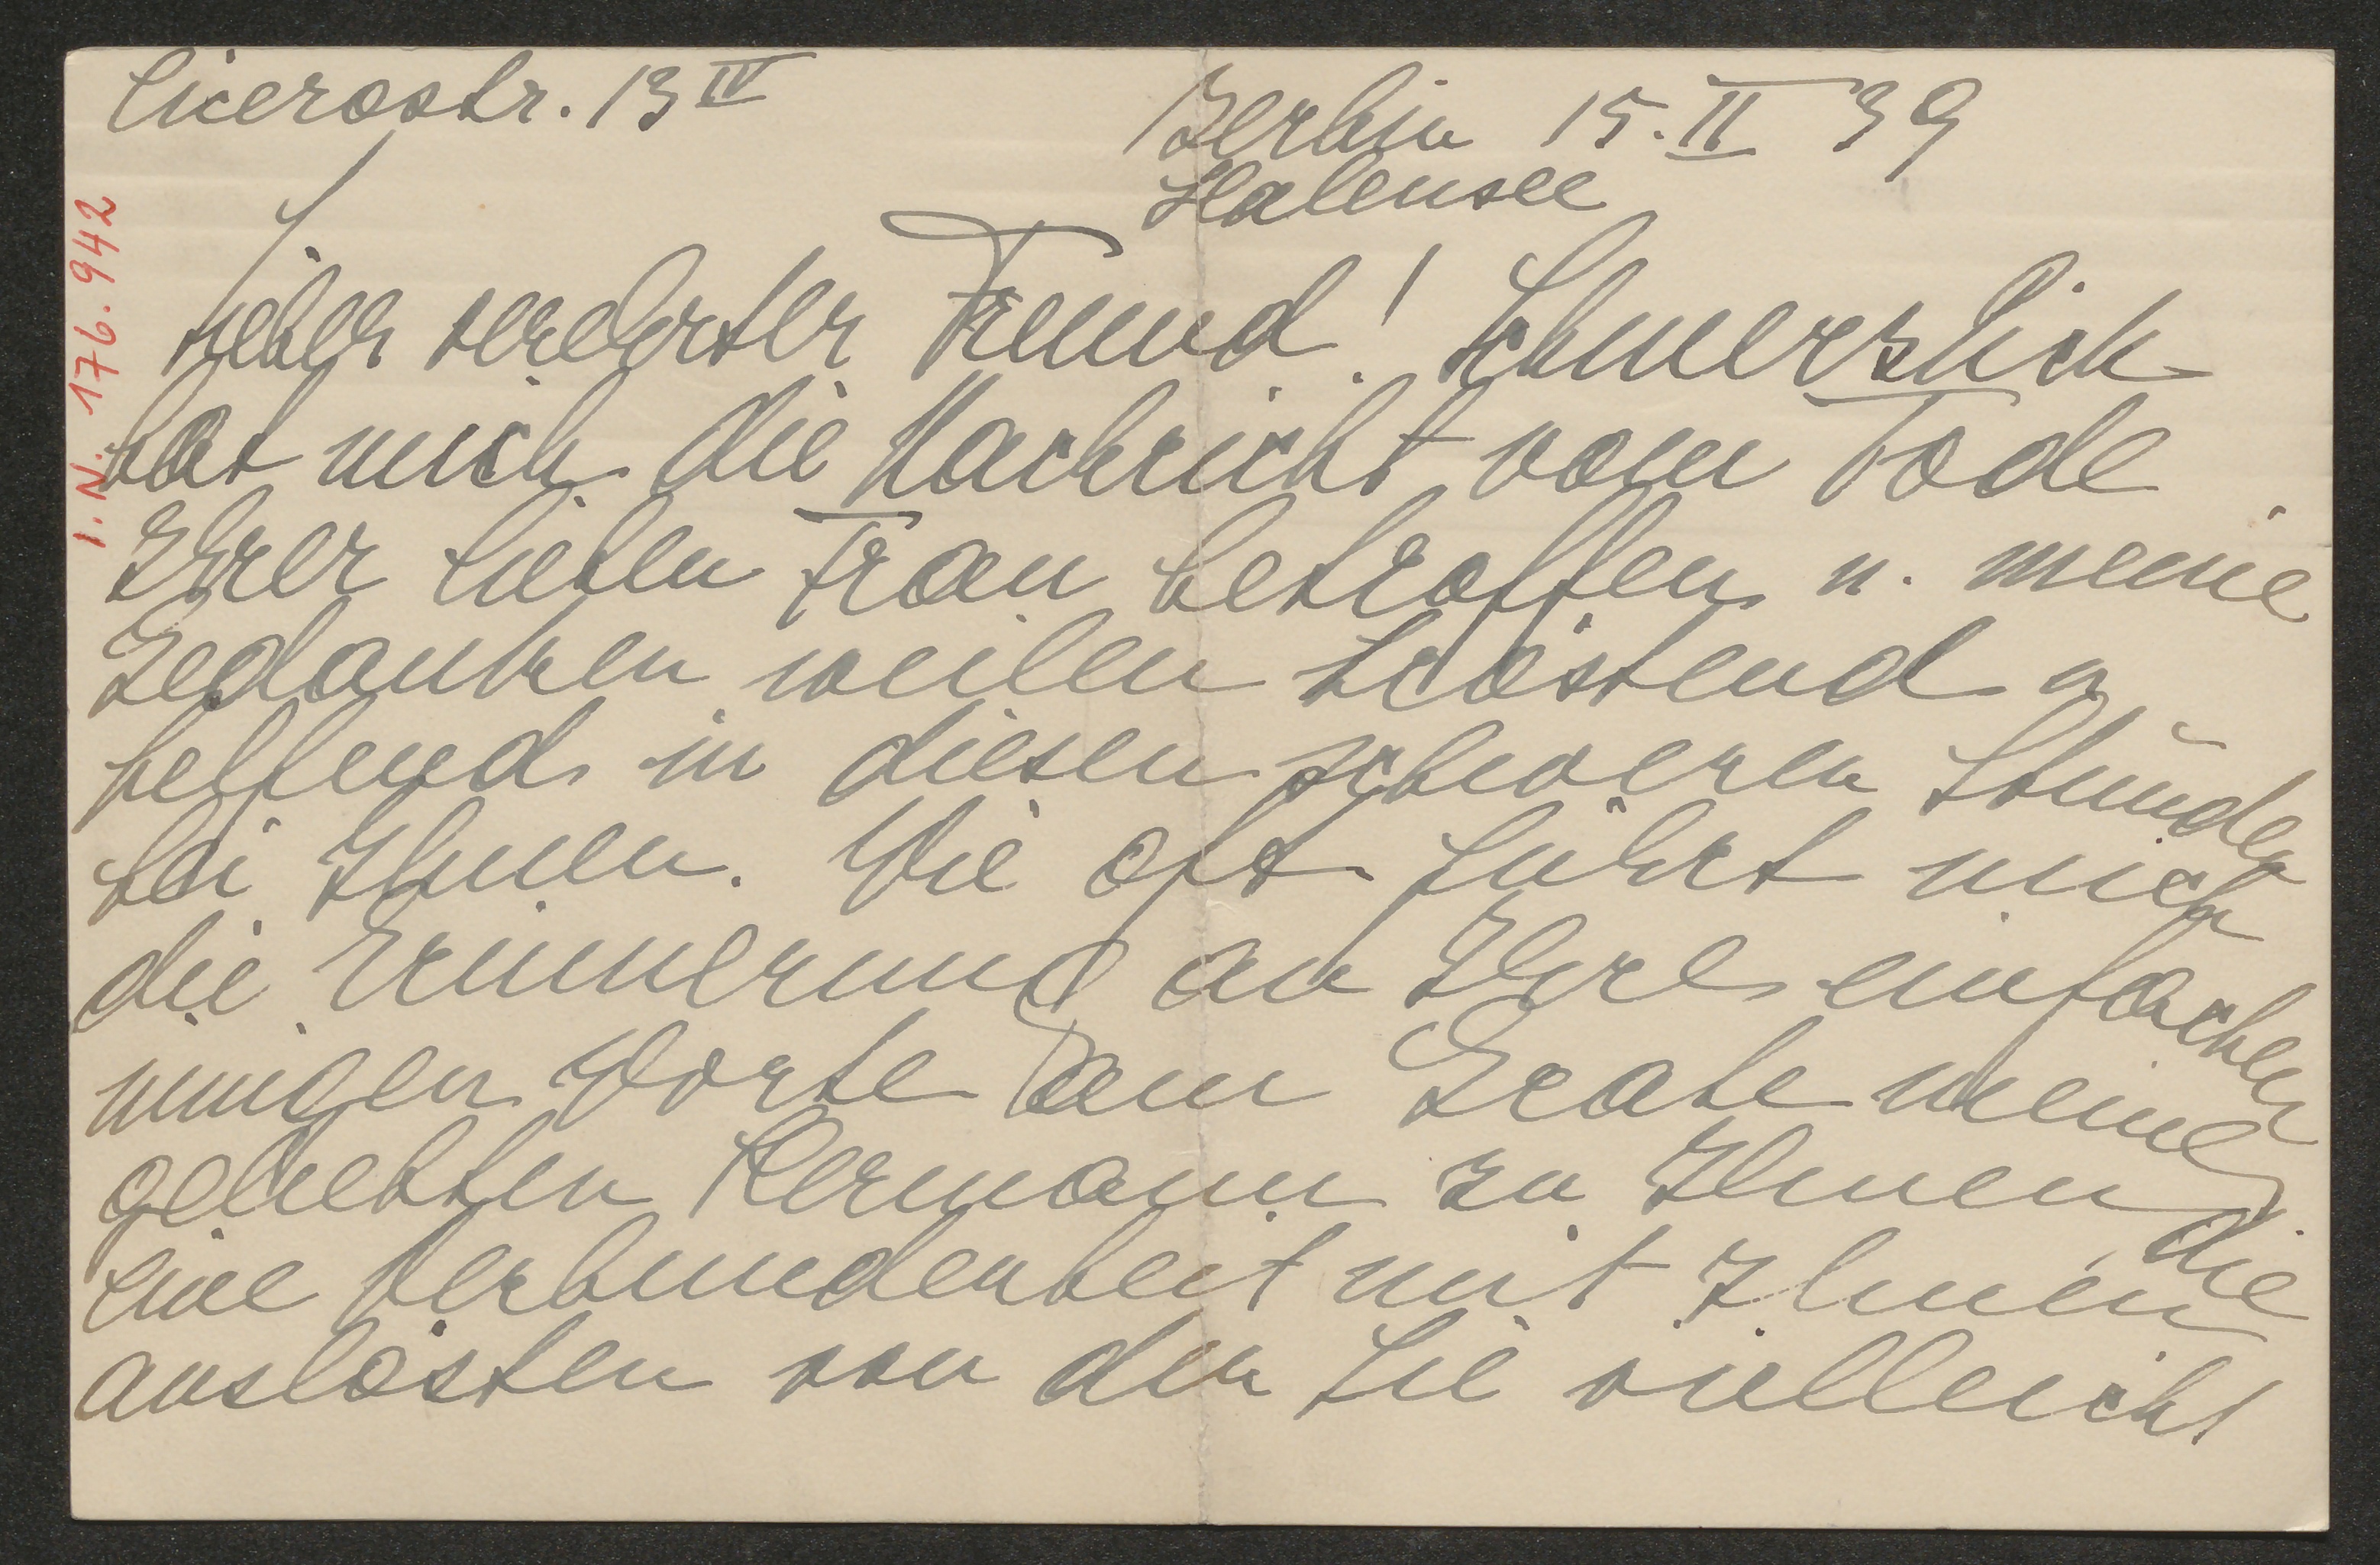 Cicerostr. 13 IV
Berlin 15. II 39
Halensee
I. N. 176.942
Lieber verehrter Freund! Schmerzlich
hat mich die Nachricht vom Tode
Ihrer lieben Frau betroffen u. meine
Gedanken weilen tröstend u
helfend in diesen schweren Stunden
bei Ihnen. Wie oft führt mich
die Erinnerung an Ihre einfachen
innigen Worte am Grabe meines
geliebten Hermann zu Ihnen die
eine Verbundenheit mit Ihnen
auslösten von der Sie vielleicht